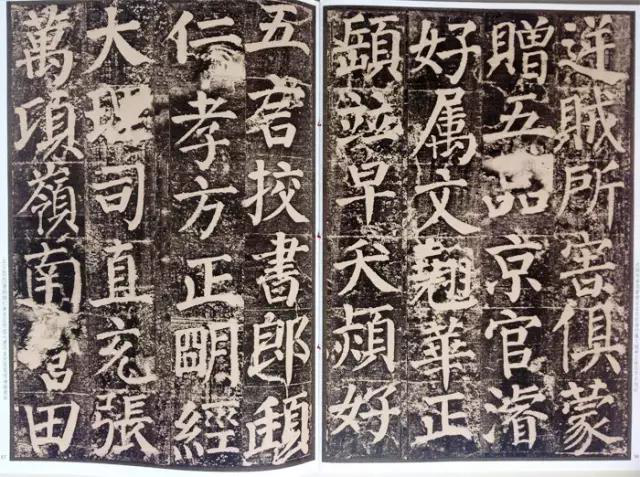 逆賊所害俱蒙
贈五品京官濬
好属文翹華正
顗並早夭熲好
五言挍書郎頲
仁孝方正眀經
大理司直充張
萬頃嶺南營田